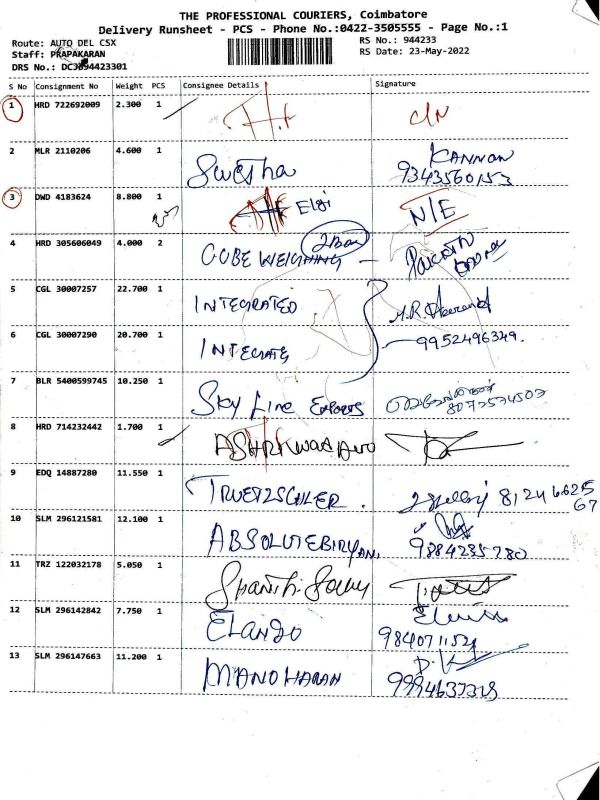 THE PROFESSIONAL COURIERS, Coimbatore
Delivery Runsheet - PCS - Phone No.:0422-3505555 - Page No.:1
Route: AUTO DEL CSX RS No.: 944233
Staff: PRAPAKARAN RS Date: 23-May-2022
DRS No.: DC3894423301
S No Consignment No Weight PCS Consignee Details Signature
1 HRD 722692009 2.300 1
2 MLR 2110206 4.600 1 Swetha KANNAN
9343560153
3 DWD 4183624 8.800 1 Elgi N/E
4 HRD 305606049 4.000 2 CUBE WEIGHING 2 Box
5 CGL 30007257 22.700 1 INTEGRATED
6 CGL 30007290 20.700 1 INTEGRATE 9952496349.
7 BLR 5400599745 10.250 1 Sky Line Exports
8072574503
8 HRD 714232442 1.700 1
9 EDQ 14887280 11.550 1 TRUETZSCHLER. 81246625
67
10 SLM 296121581 12.100 1 ABSOLUTEBIRYANI 9884235780
11 TRZ 122032178 5.050 1
12 SLM 296142842 7.750 1 ELANGO
9840711521
13 SLM 296147663 11.200 1 MANOHARAN
9994637328